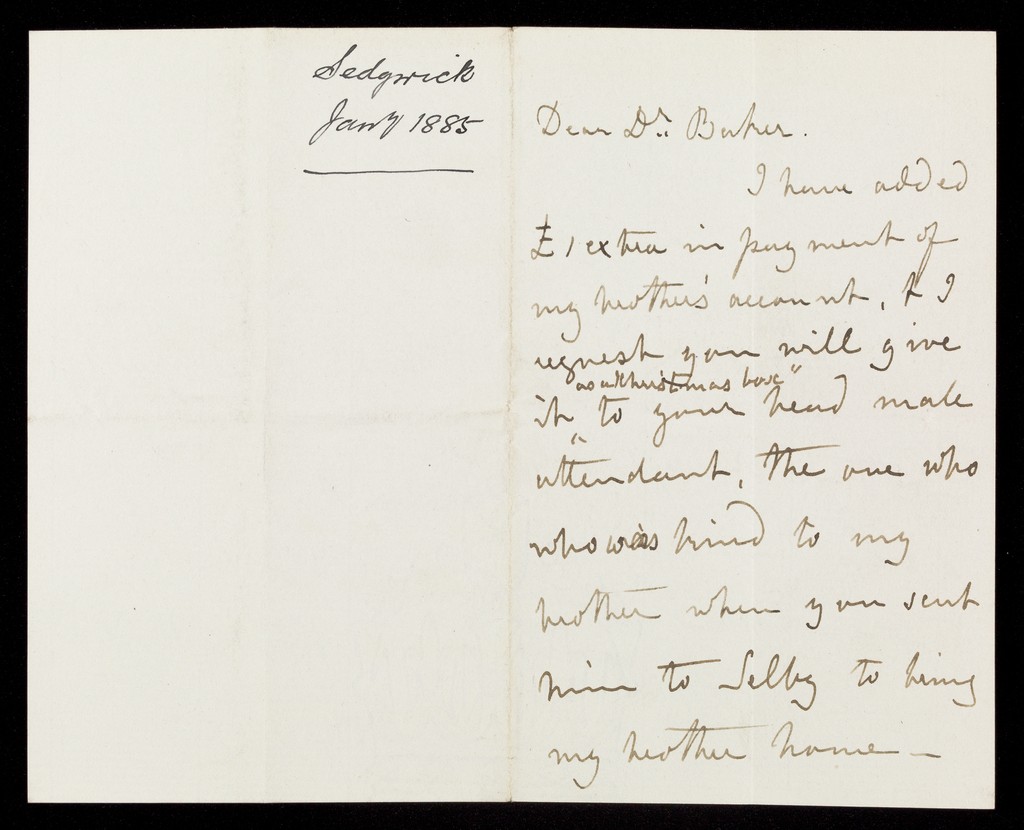 Sedgwick
Jany 1885
Dear Dr. Baker.
I have added
£1 extra in payment of
my brother's account, & I
request you will give
"as a Christmas box"
it to your head male
attendant, the one who
who was kind to my
brother when you sent
him to Selby to bring
my brother home —